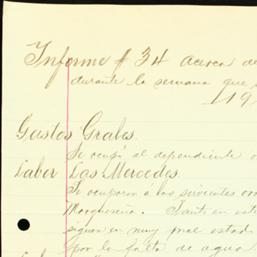 Informe # 34 acerca de
durante la semana que
191
Gastos Grales.
Se ocupó al dependiente
Labor Las Mercedes.
Se ocuparon á los sirvientes
Margueseña. Tanto en este
siguen en muy mal estado
por la falta de agua